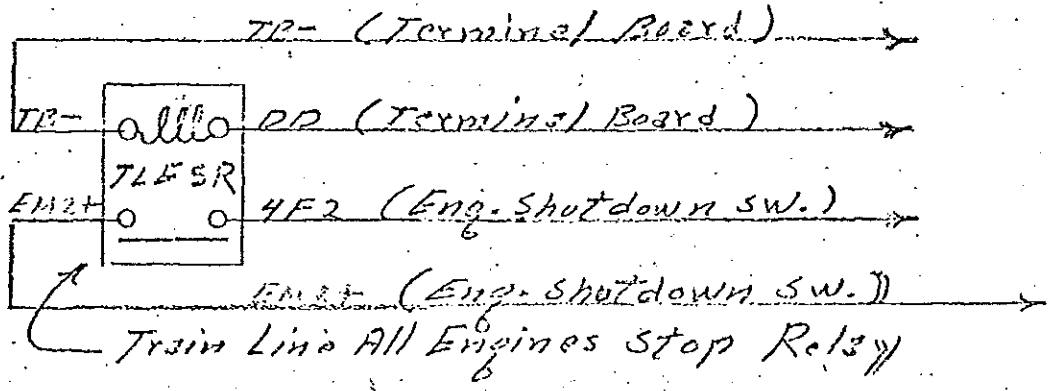 TB- (Terminal Board)
TB- DD (Terminal Board)
TLESR
EM2+ 4F2 (Eng. Shutdown SW.)
EM2+ (Eng. Shutdown SW.)
Train Line All Engines Stop Relay